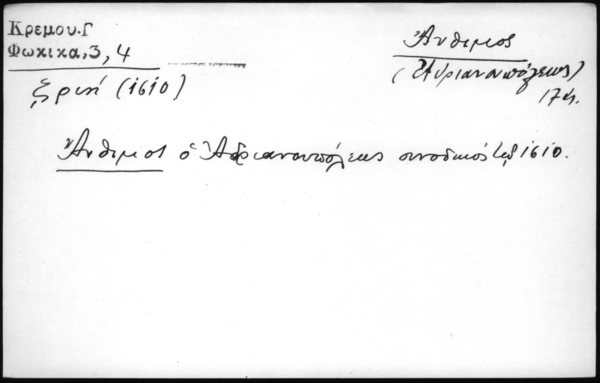 Κρεμου.Γ
Φωκικα,3,4
(1610)
Ἄνθιμος
(Ἀδριανουπόλεως)
17 αἰ.
Ἄνθιμος ὁ Ἀδριανουπόλεως συνοδικός 1610.